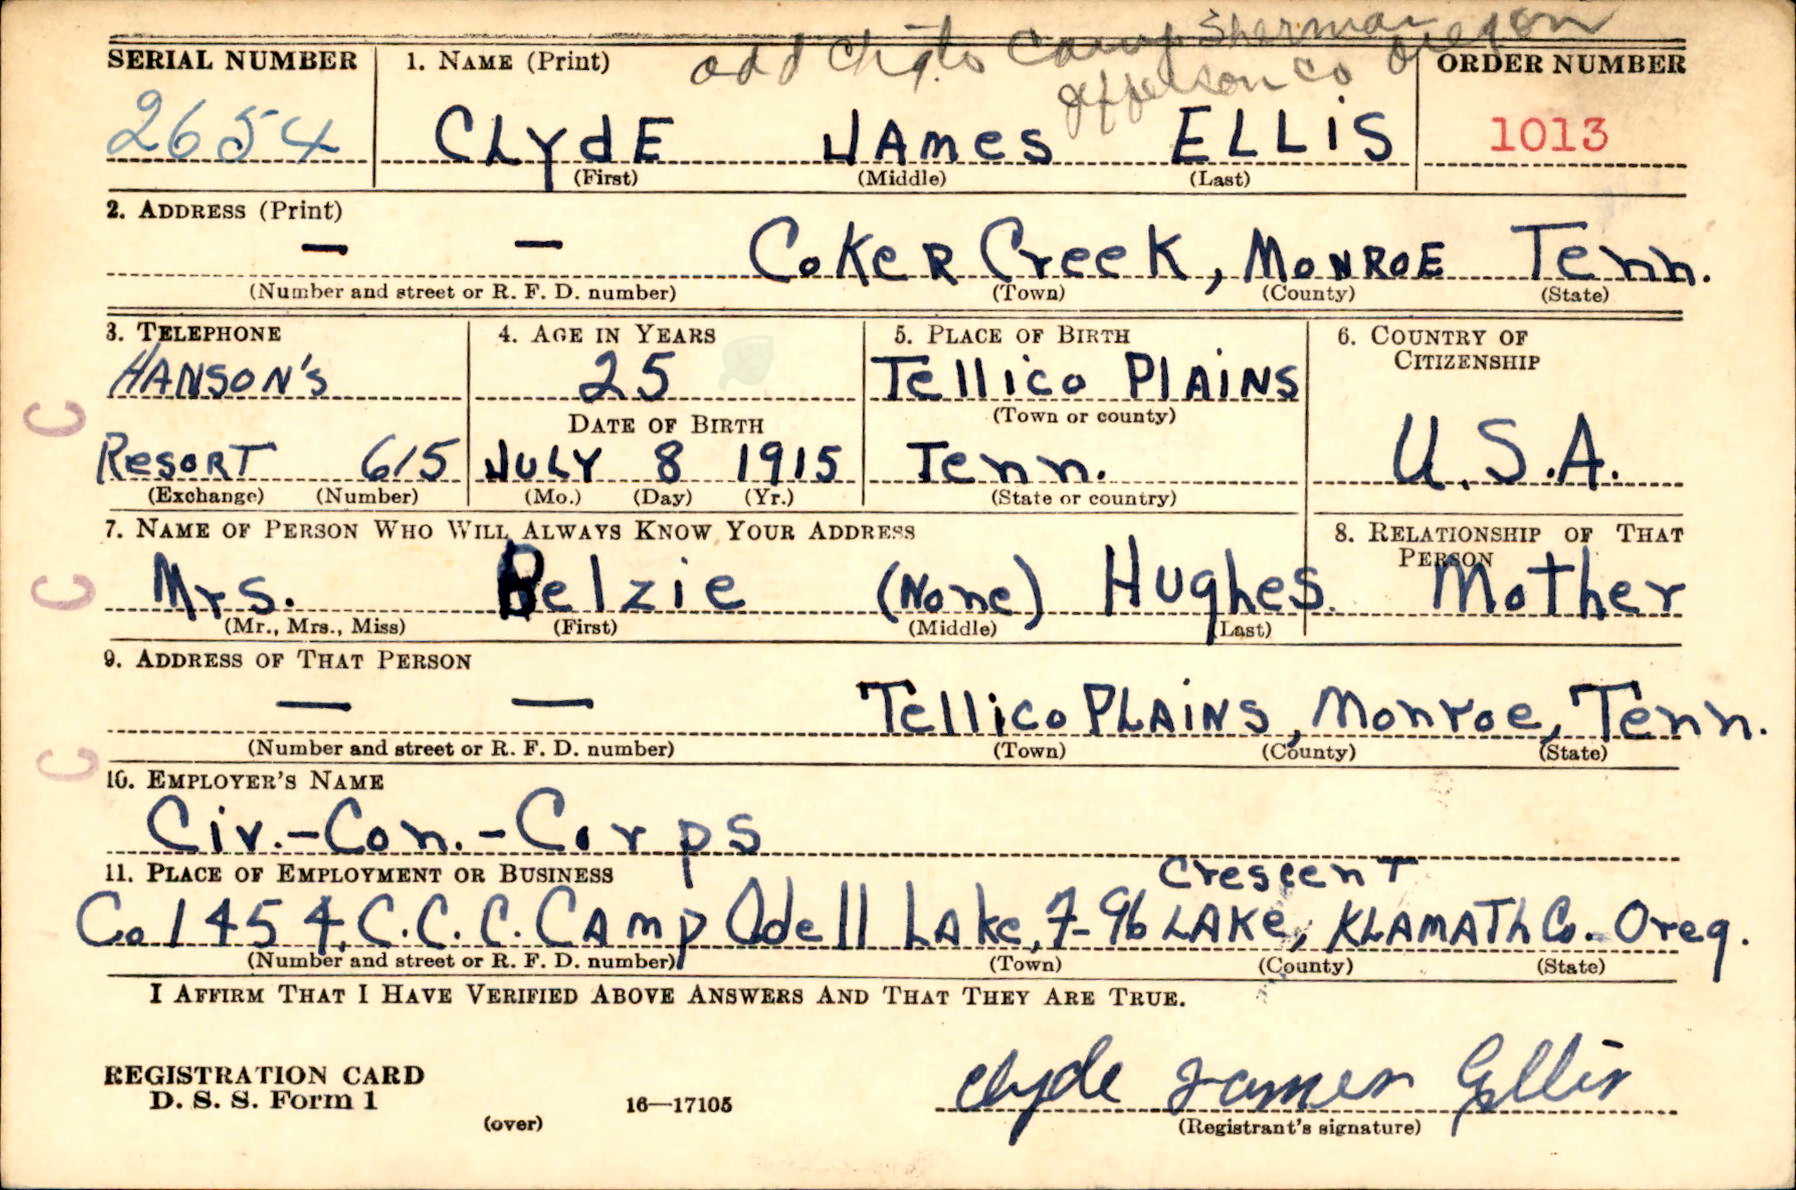 add chg to Camp Sherman Oregon
Jefferson Co
SERIAL NUMBER 1. NAME (Print) ORDER NUMBER
2654 CLYdE JAmes ELLiS 1013
(First) (Middle) (Last)
2. ADDRESS (Print)
— — CoKeR Creek, MONROE Tenn.
(Number and street or R. F. D. number) (Town) (County) (State)
3. TELEPHONE 4. AGE IN YEARS 5. PLACE OF BIRTH 6. COUNTRY OF CITIZENSHIP
HANSON'S 25 Tellico PlAiNS
DATE OF BIRTH (Town or county)
ResoRT 615 JULY 8 1915 Tenn. U.S.A.
(Exchange) (Number) (Mo.) (Day) (Yr.) (State or country)
7. NAME OF PERSON WHO WILL ALWAYS KNOW YOUR ADDRESS 8. RELATIONSHIP OF THAT PERSON
Mrs. Belzie (None) Hughes. Mother
(Mr., Mrs., Miss) (First) (Middle) (Last)
9. ADDRESS OF THAT PERSON
— — Tellico PLAiNS, Monroe, Tenn.
(Number and street or R. F. D. number) (Town) (County) (State)
10. EMPLOYER'S NAME
Civ.-Con.-Corps
11. PLACE OF EMPLOYMENT OR BUSINESS
Crescent
Co. 1454, C.C.C. CAmp Odell LAke, 7-96 LAKe, KLAMATh Co. Oreg.
(Number and street or R. F. D. number) (Town) (County) (State)
I AFFIRM THAT I HAVE VERIFIED ABOVE ANSWERS AND THAT THEY ARE TRUE.
REGISTRATION CARD
D. S. S. Form 1
(over) 16—17105
Clyde James Ellis
(Registrant's signature)
C
C
C